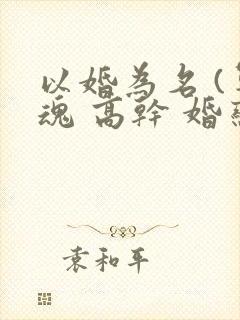 以婚為名(
魂 高幹 婚
袁和平